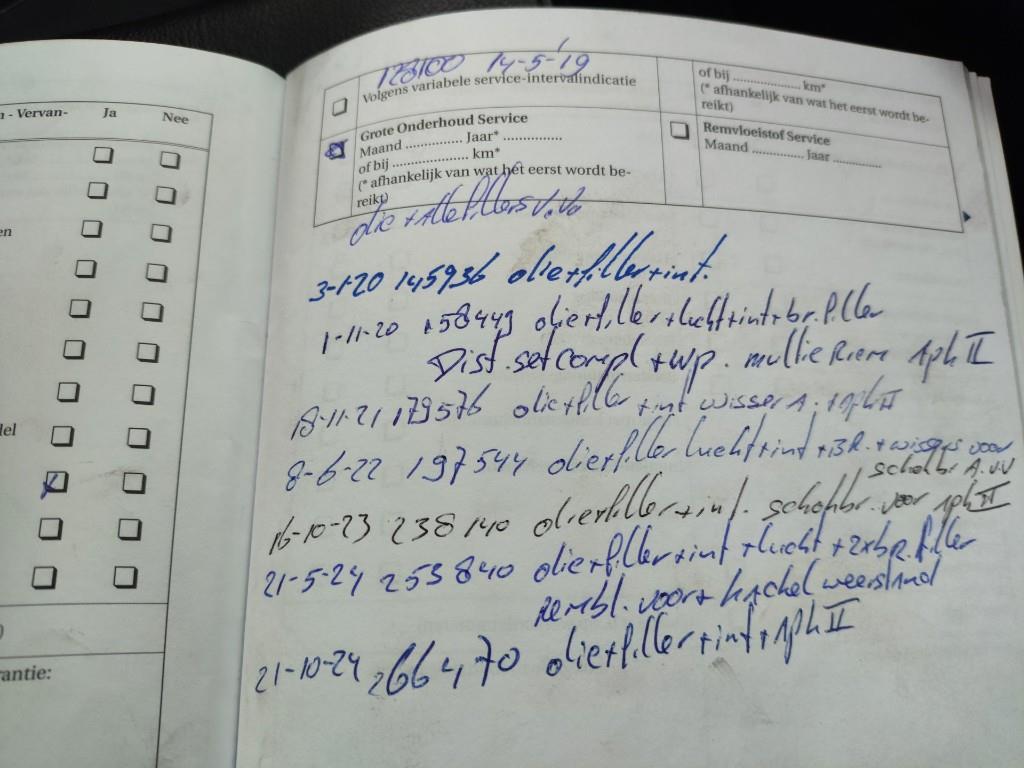 n - Vervan-
Ja
Nee
en
del
)
rantie:
128100 14-5-'19
Volgens variabele service-intervalindicatie
Grote Onderhoud Service
Maand .............. Jaar* ...............
of bij ................... km*
(* afhankelijk van wat het eerst wordt be-
reikt)
of bij .................. km*
(* afhankelijk van wat het eerst wordt be-
reikt)
Remvloeistof Service
Maand ............. Jaar .............
olie + Alle filters V.V.
3-1-20 145936 olie+filter+int.
1-11-20 158449 olie+filter+lucht+int+br.filter
Dist.set compl + wp. multie Riem 1ph II
18-11-21 179576 olie+filter+int wisser A. + 1ph II
8-6-22 197544 olie+filter lucht+int + BR. + wissers voor
schokbr A.V.V
16-10-23 238140 olie+filter+int. schokbr. voor 1ph II
21-5-24 253840 olie+filter+int+lucht+2xbr.filter
rembl. voor + kachel weerstand
21-10-24 266470 olie+filter+int+1ph II